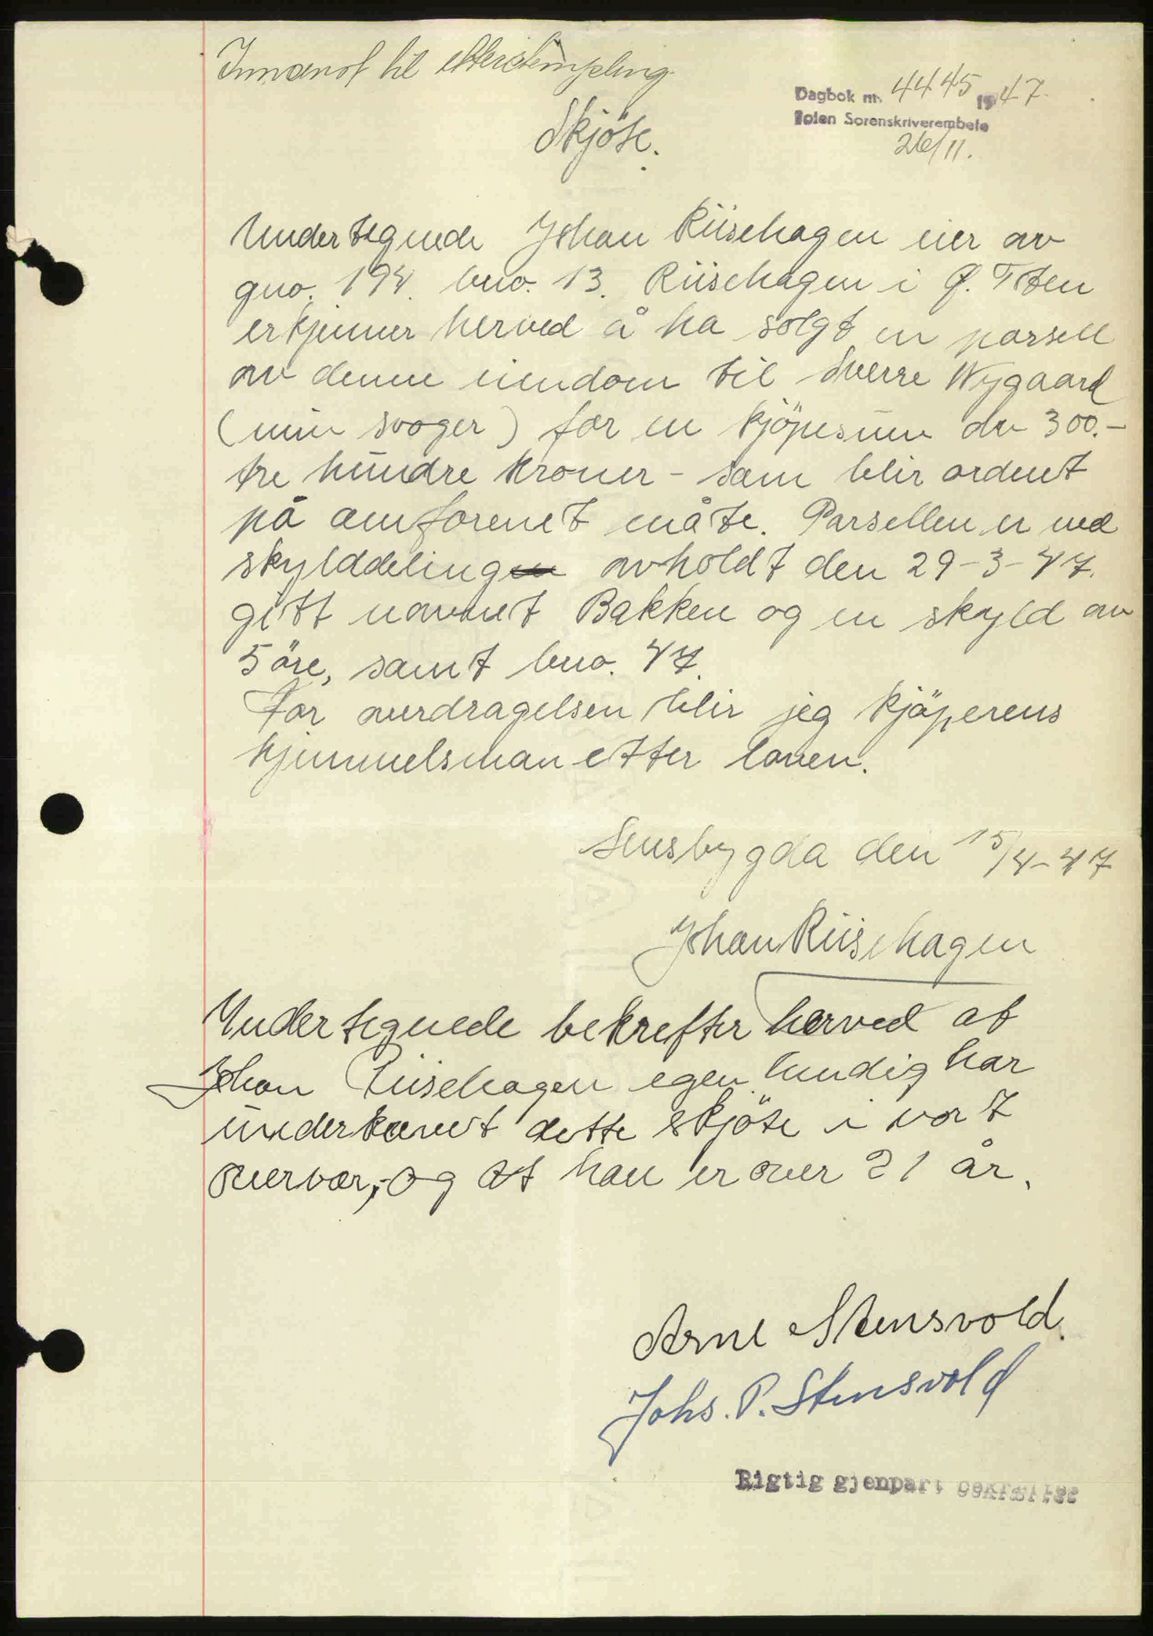 til etterstempling
Dagbok nr. 4445 1947.
Toten Sorenskriverembete
26/11.
Skjöte.
Undertegnede Johan Riisehagen eier av
gno. 194. bno. 13. Riisehagen i Ø. Toten
erkjenner herved å ha solgt en parsell
av denne eiendom til Sverre Nygaard
(min svoger) for en kjöpesum av 300.-
tre hundre kroner - som blir ordnet
på omforenet måte. Parsellen er ved
skylddeling avholdt den 29-3-47.
gitt navnet Bakken og en skyld av
5 öre, samt bno. 47.
For overdragelsen blir jeg kjöperens
hjemmelsman etter loven.
den 15/4-47
Johan Riisehagen
Undertegnede bekrefter herved at
Johan Riisehagen egenhendig har
underkrevet dette skjöte i vort
nærvær, og at han er over 21 år.
Arne Stensvold.
Johs. P. Stensvold
Rigtig gjenpart bekræftes